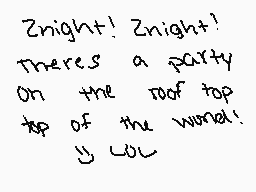 2night! 2night!
theres a party
on the roof top
top of the world!
=) LOL